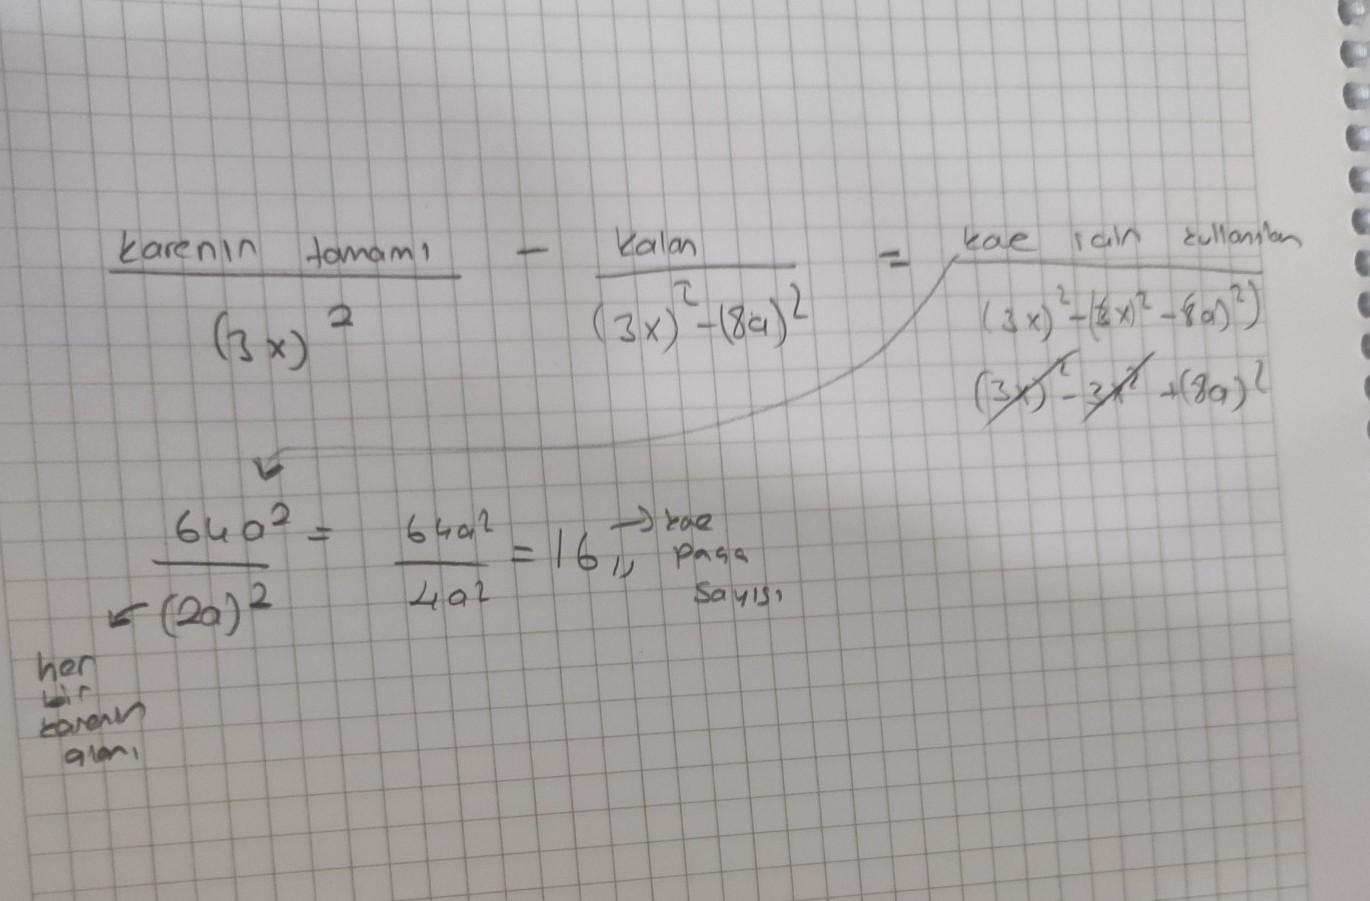 karenin tamamı - kalan = kae için kullanılan
(3x)² (3x)²-(8a)² (3x)²-(3x)²-8a)²)
(3x)²-3x² +(8a)²
64a² = 64a² = 16,, → kae
(2a)² 4a² paça
sayısı
her
bir
karenin
alanı